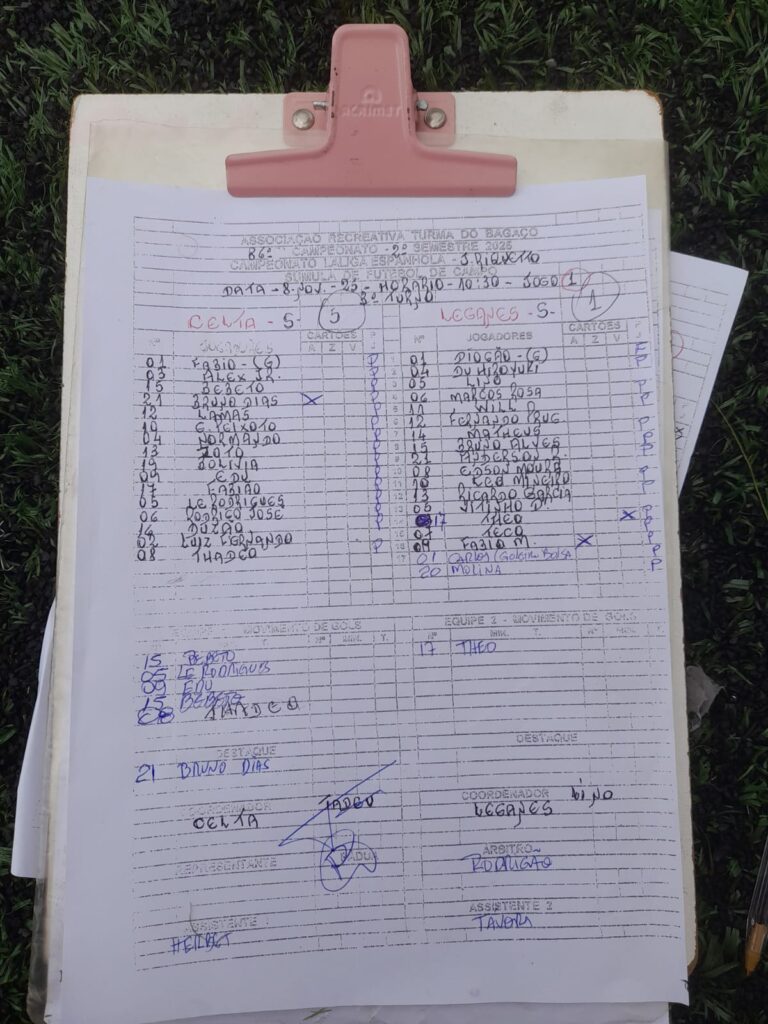 TEMIKOR
ASSOCIAÇÃO RECREATIVA TURMA DO BAGAÇO
86º CAMPEONATO - 2º SEMESTRE 2025
CAMPEONATO LALIGA ESPANHOLA - S.RIQUETTO
SÚMULA DE FUTEBOL DE CAMPO
DATA - 8.NOV.-25 - HORÁRIO - 10:30 - JOGO 1
TURNO
CELTA - S- 5 LEGANES - S- 1
Nº JOGADORES CARTÕES A Z V Nº JOGADORES CARTÕES A Z V
01 FABIO - (G) P 01 DIOGÃO - (G)
03 ALEX JR. P 04 DU HIROYUKI
15 BEBETO P 05 LINO
21 BRUNO DIAS X P 06 MARCOS ROSA
12 LAMAS P 11 WILL P.
10 E. PEIXOTO P 12 FERNANDO
04 NORMANDO P 14 MATHEUS
13 P 15 BRUNO ALVES
19 BOLIVIA P ANDERSON
09 EDU P 08 EDSON MOURA
17 FABIÃO P 10 MINEIRO
05 LE RODRIGUES P 13 RICARDO GARCIA
06 RODRIGO JOSE P VITINHO
14 DUZÃO P 17 THEO X
02 LUIZ FERNANDO P TECO
08 THADEO FABIO M. X
01 CARLOS (Goleiro Bolsa
20 MOLINA P
MOVIMENTO DE GOLS EQUIPE 2 - MOVIMENTO DE GOLS
Nº MIN. T. Nº MIN. T. Nº MIN. T.
15 BEBETO 17 THEO
05 LE RODRIGUES
09 EDU
15 BEBETO
08 THADEO
DESTAQUE DESTAQUE
21 BRUNO DIAS
COORDENADOR TADEU COORDENADOR LINO
CELTA LEGANES
REPRESENTANTE ARBITRO
RODRIGÃO
ASSISTENTE 1 ASSISTENTE 2
HERBET TAVORA